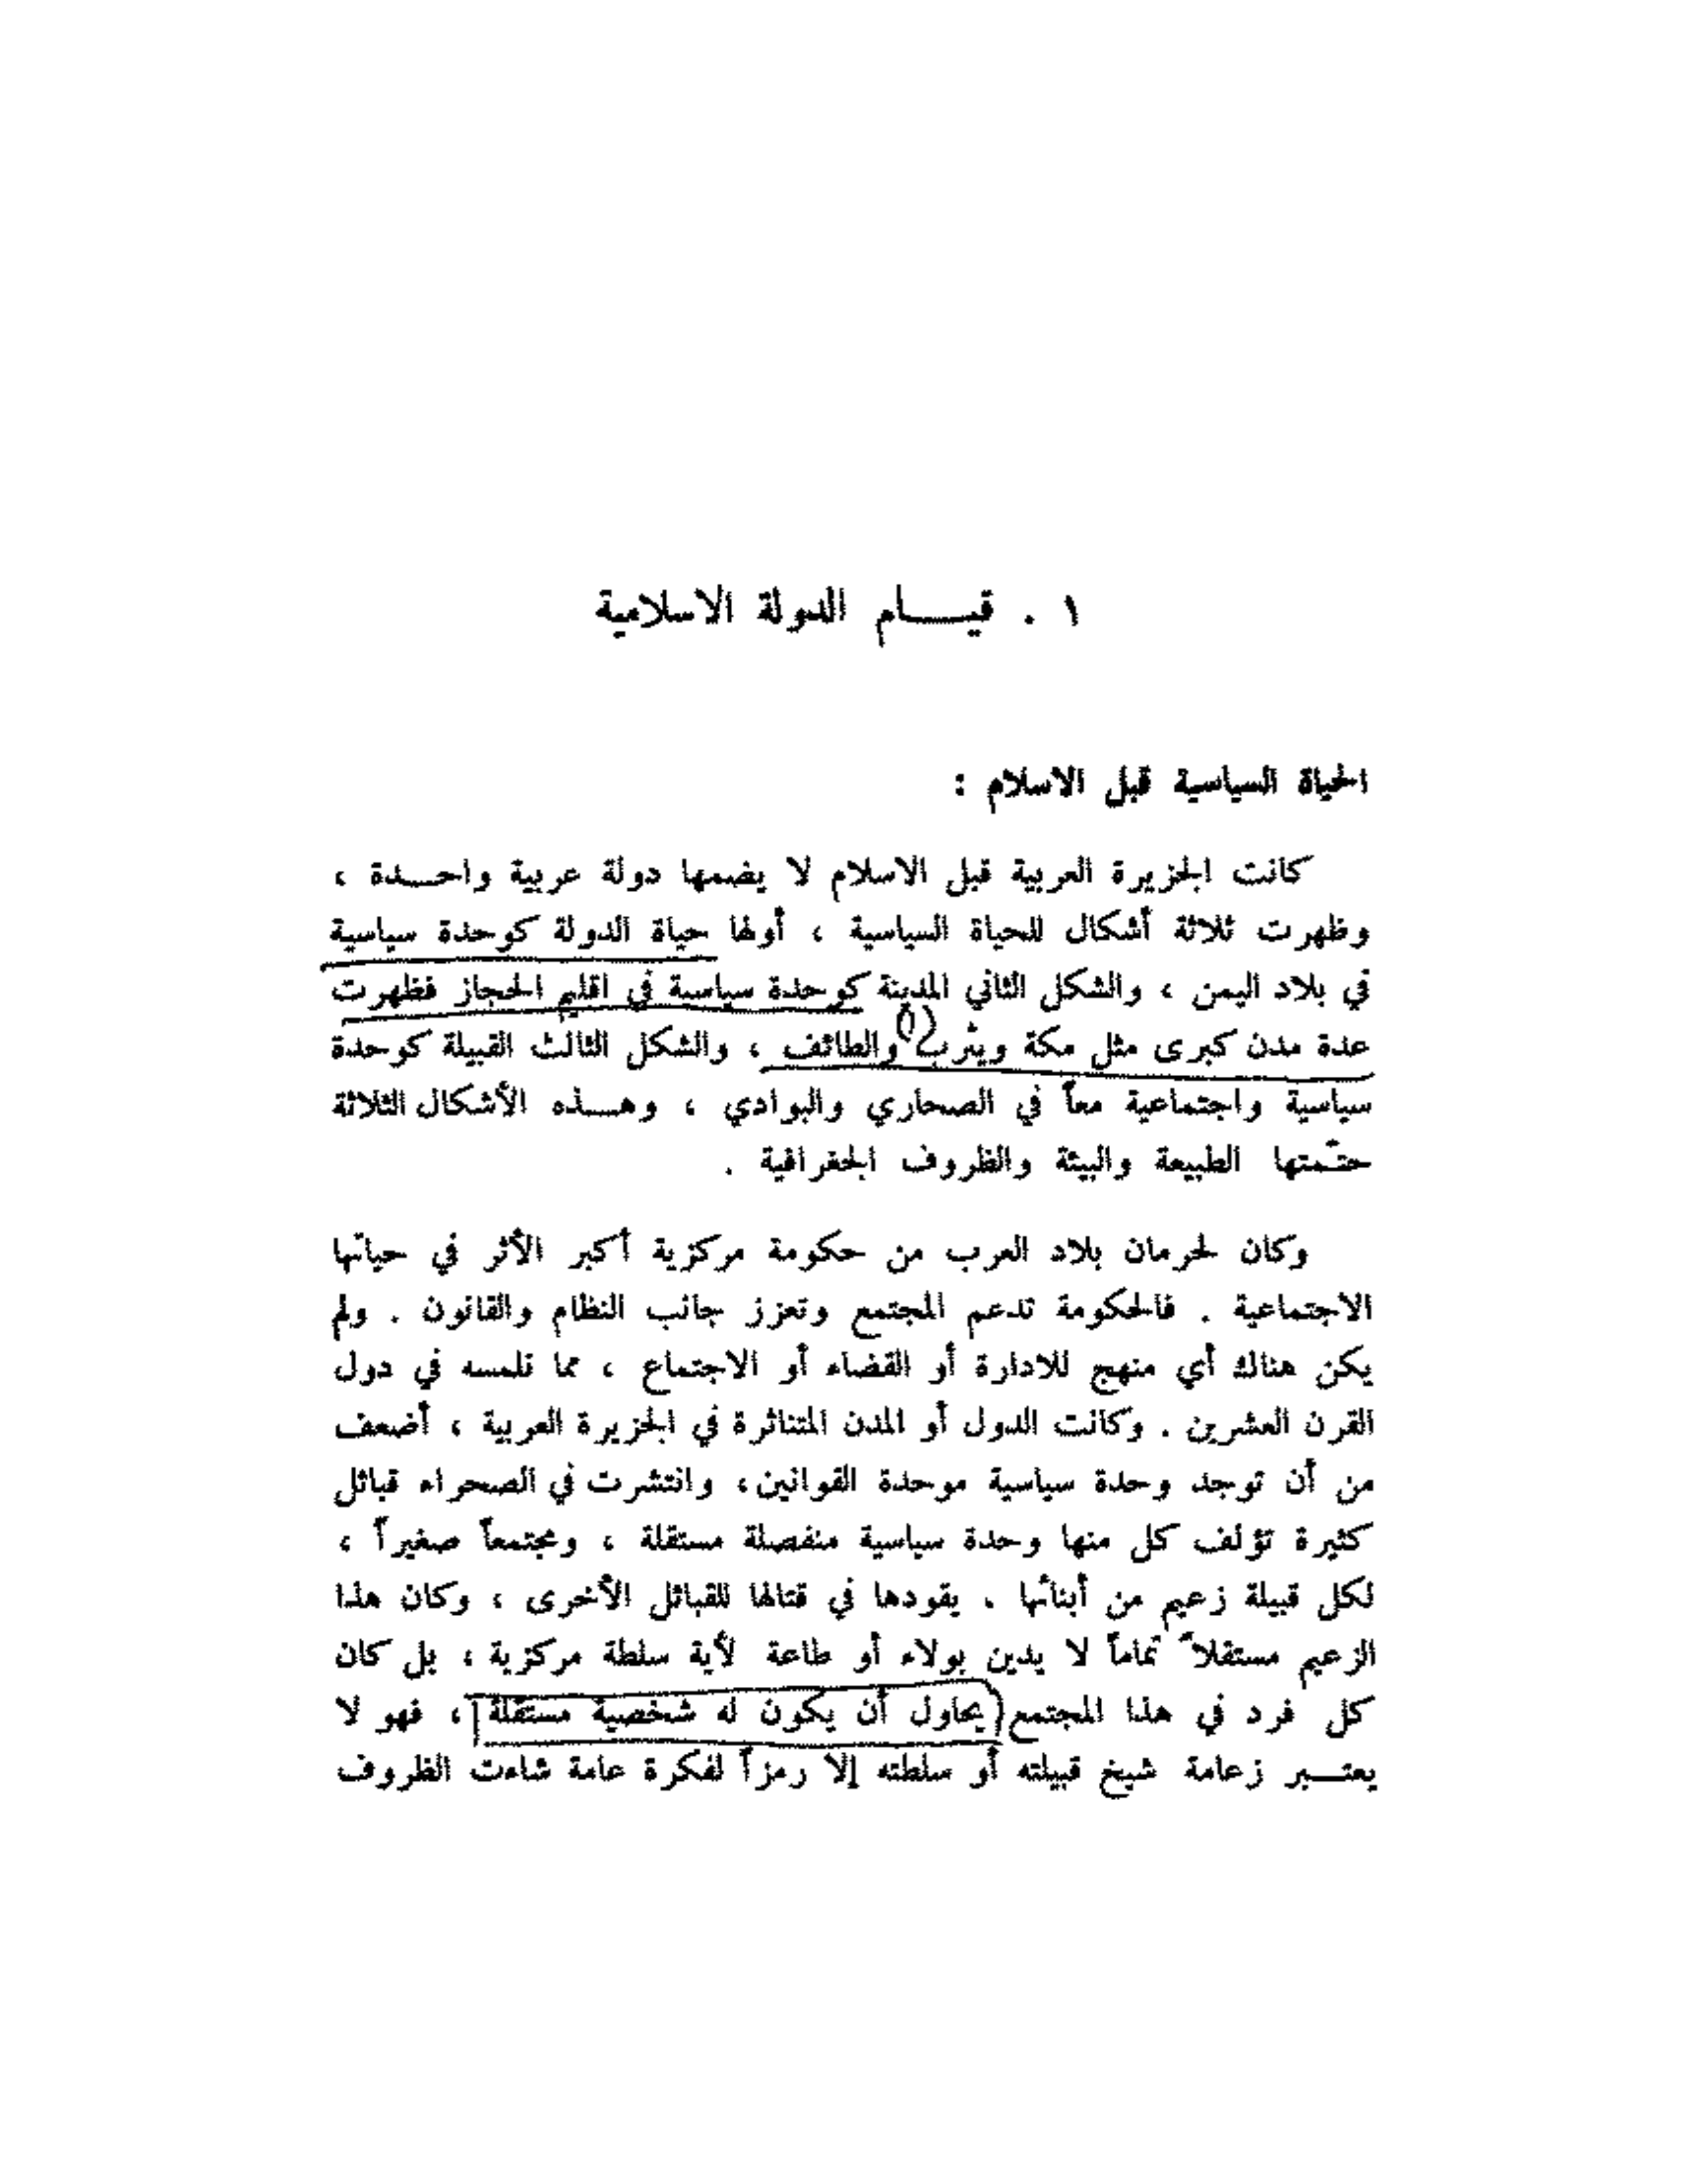 ١ . قيـــام الدولة الاسلامية
الحياة السياسية قبل الاسلام :
كانت الجزيرة العربية قبل الاسلام لا يضمها دولة عربية واحـــدة ،
وظهرت ثلاثة أشكال للحياة السياسية ، أولها حياة الدولة كوحدة سياسية
في بلاد اليمن ، والشكل الثاني المدينة كوحدة سياسية في اقليم الحجاز فظهرت
عدة مدن كبرى مثل مكة ويثرب والطائف ، والشكل الثالث القبيلة كوحدة
سياسية واجتماعية معاً في الصحاري والبوادي ، وهـــذه الأشكال الثلاثة
حتّمتها الطبيعة والبيئة والظروف الجغرافية .
وكان لحرمان بلاد العرب من حكومة مركزية أكبر الأثر في حياتها
الاجتماعية . فالحكومة تدعم المجتمع وتعزز جانب النظام والقانون . ولم
يكن هناك أي منهج للادارة أو القضاء أو الاجتماع ، مما نلمسه في دول
القرن العشرين . وكانت الدول أو المدن المتناثرة في الجزيرة العربية ، أضعف
من أن توجد وحدة سياسية موحدة القوانين، وانتشرت في الصحراء قبائل
كثيرة تؤلف كل منها وحدة سياسية منفصلة مستقلة ، ومجتمعاً صغيراً ،
لكل قبيلة زعيم من أبنائها . يقودها في قتالها للقبائل الأخرى ، وكان هذا
الزعيم مستقلاً تماماً لا يدين بولاء أو طاعة لأية سلطة مركزية ، بل كان
كل فرد في هذا المجتمع يحاول أن يكون له شخصية مستقلة ، فهو لا
يعتـــبر زعامة شيخ قبيلته أو سلطته إلا رمزاً لفكرة عامة شاءت الظروف